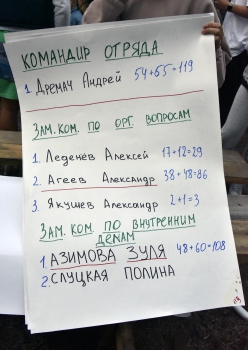 КОМАНДИР ОТРЯДА
1. Дремач Андрей 54+65=119
ЗАМ. КОМ. ПО ОРГ. ВОПРОСАМ
1. Леденёв Алексей 17+12=29
2. Агеев Александр 38+48=86
3. Якушев Александр 2+1=3
ЗАМ. КОМ. ПО ВНУТРЕННИМ
ДЕЛАМ
1. АЗИМОВА ЗУЛЯ 48+60=108
2. СЛУЦКАЯ ПОЛИНА